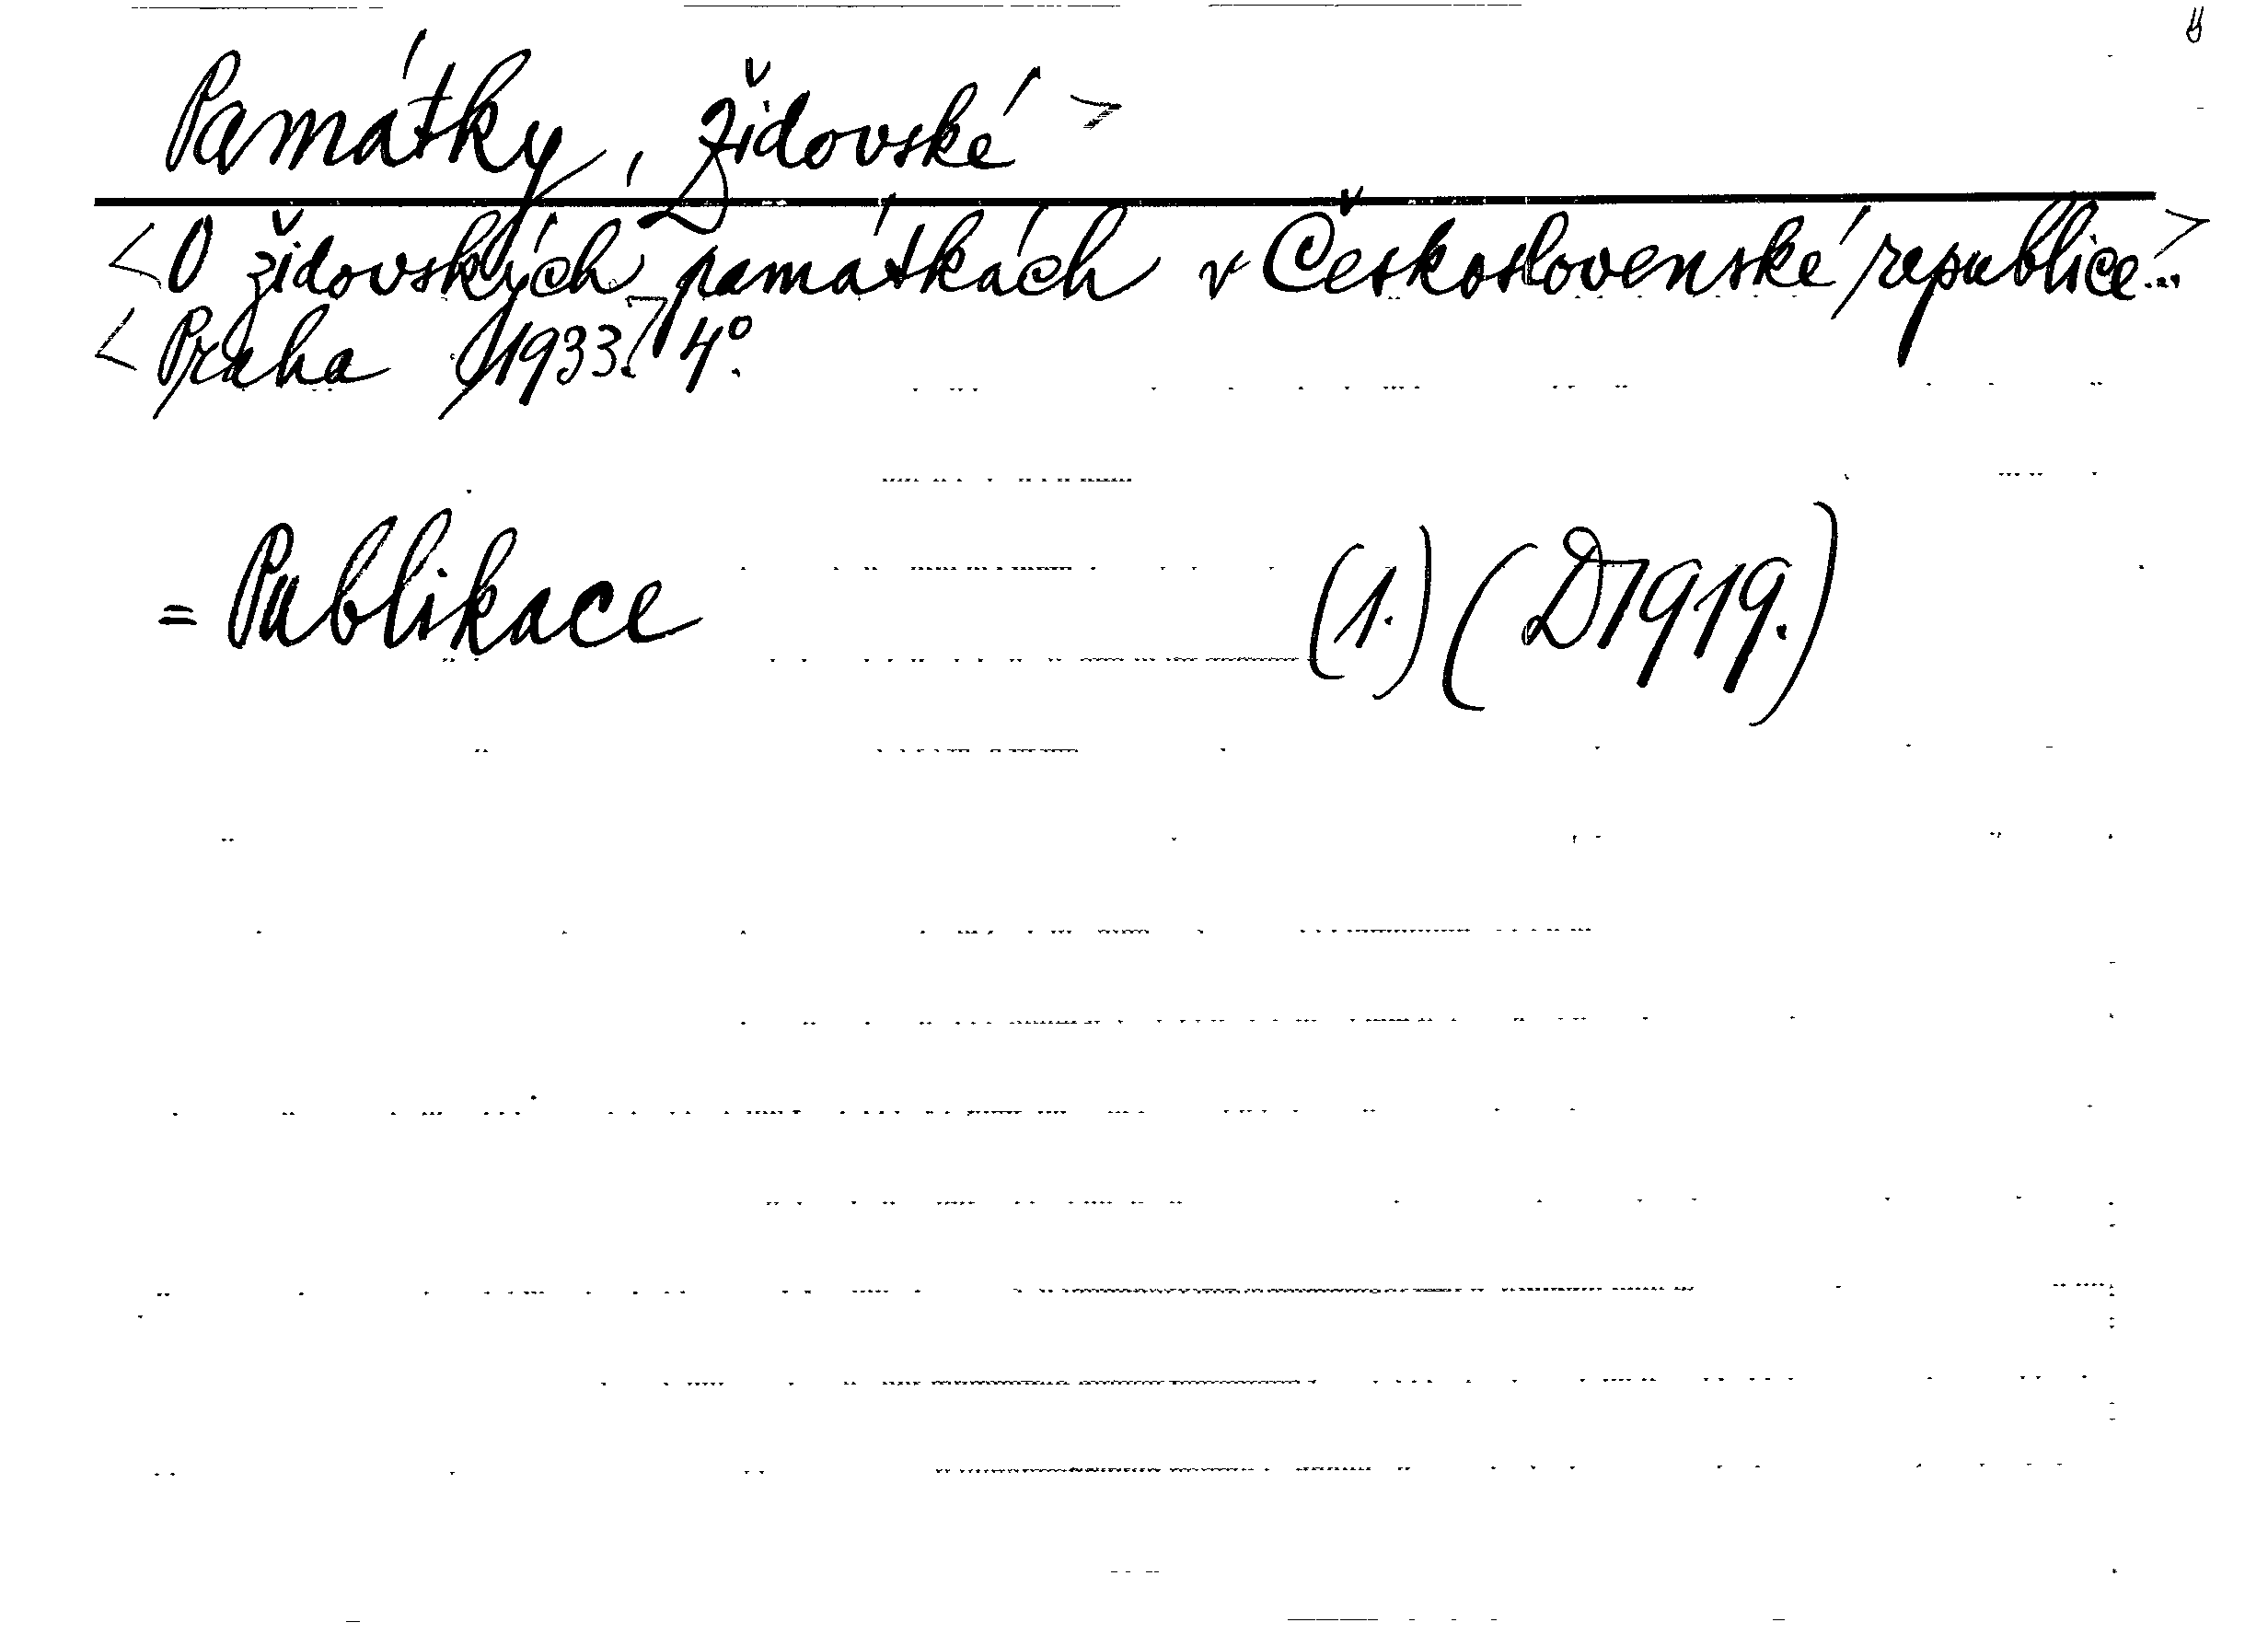 Památky, židovské >
< O židovských památkách v Československé republice... >
< Praha 1933. > 4°.
= Publikace (1.) (D1919.)